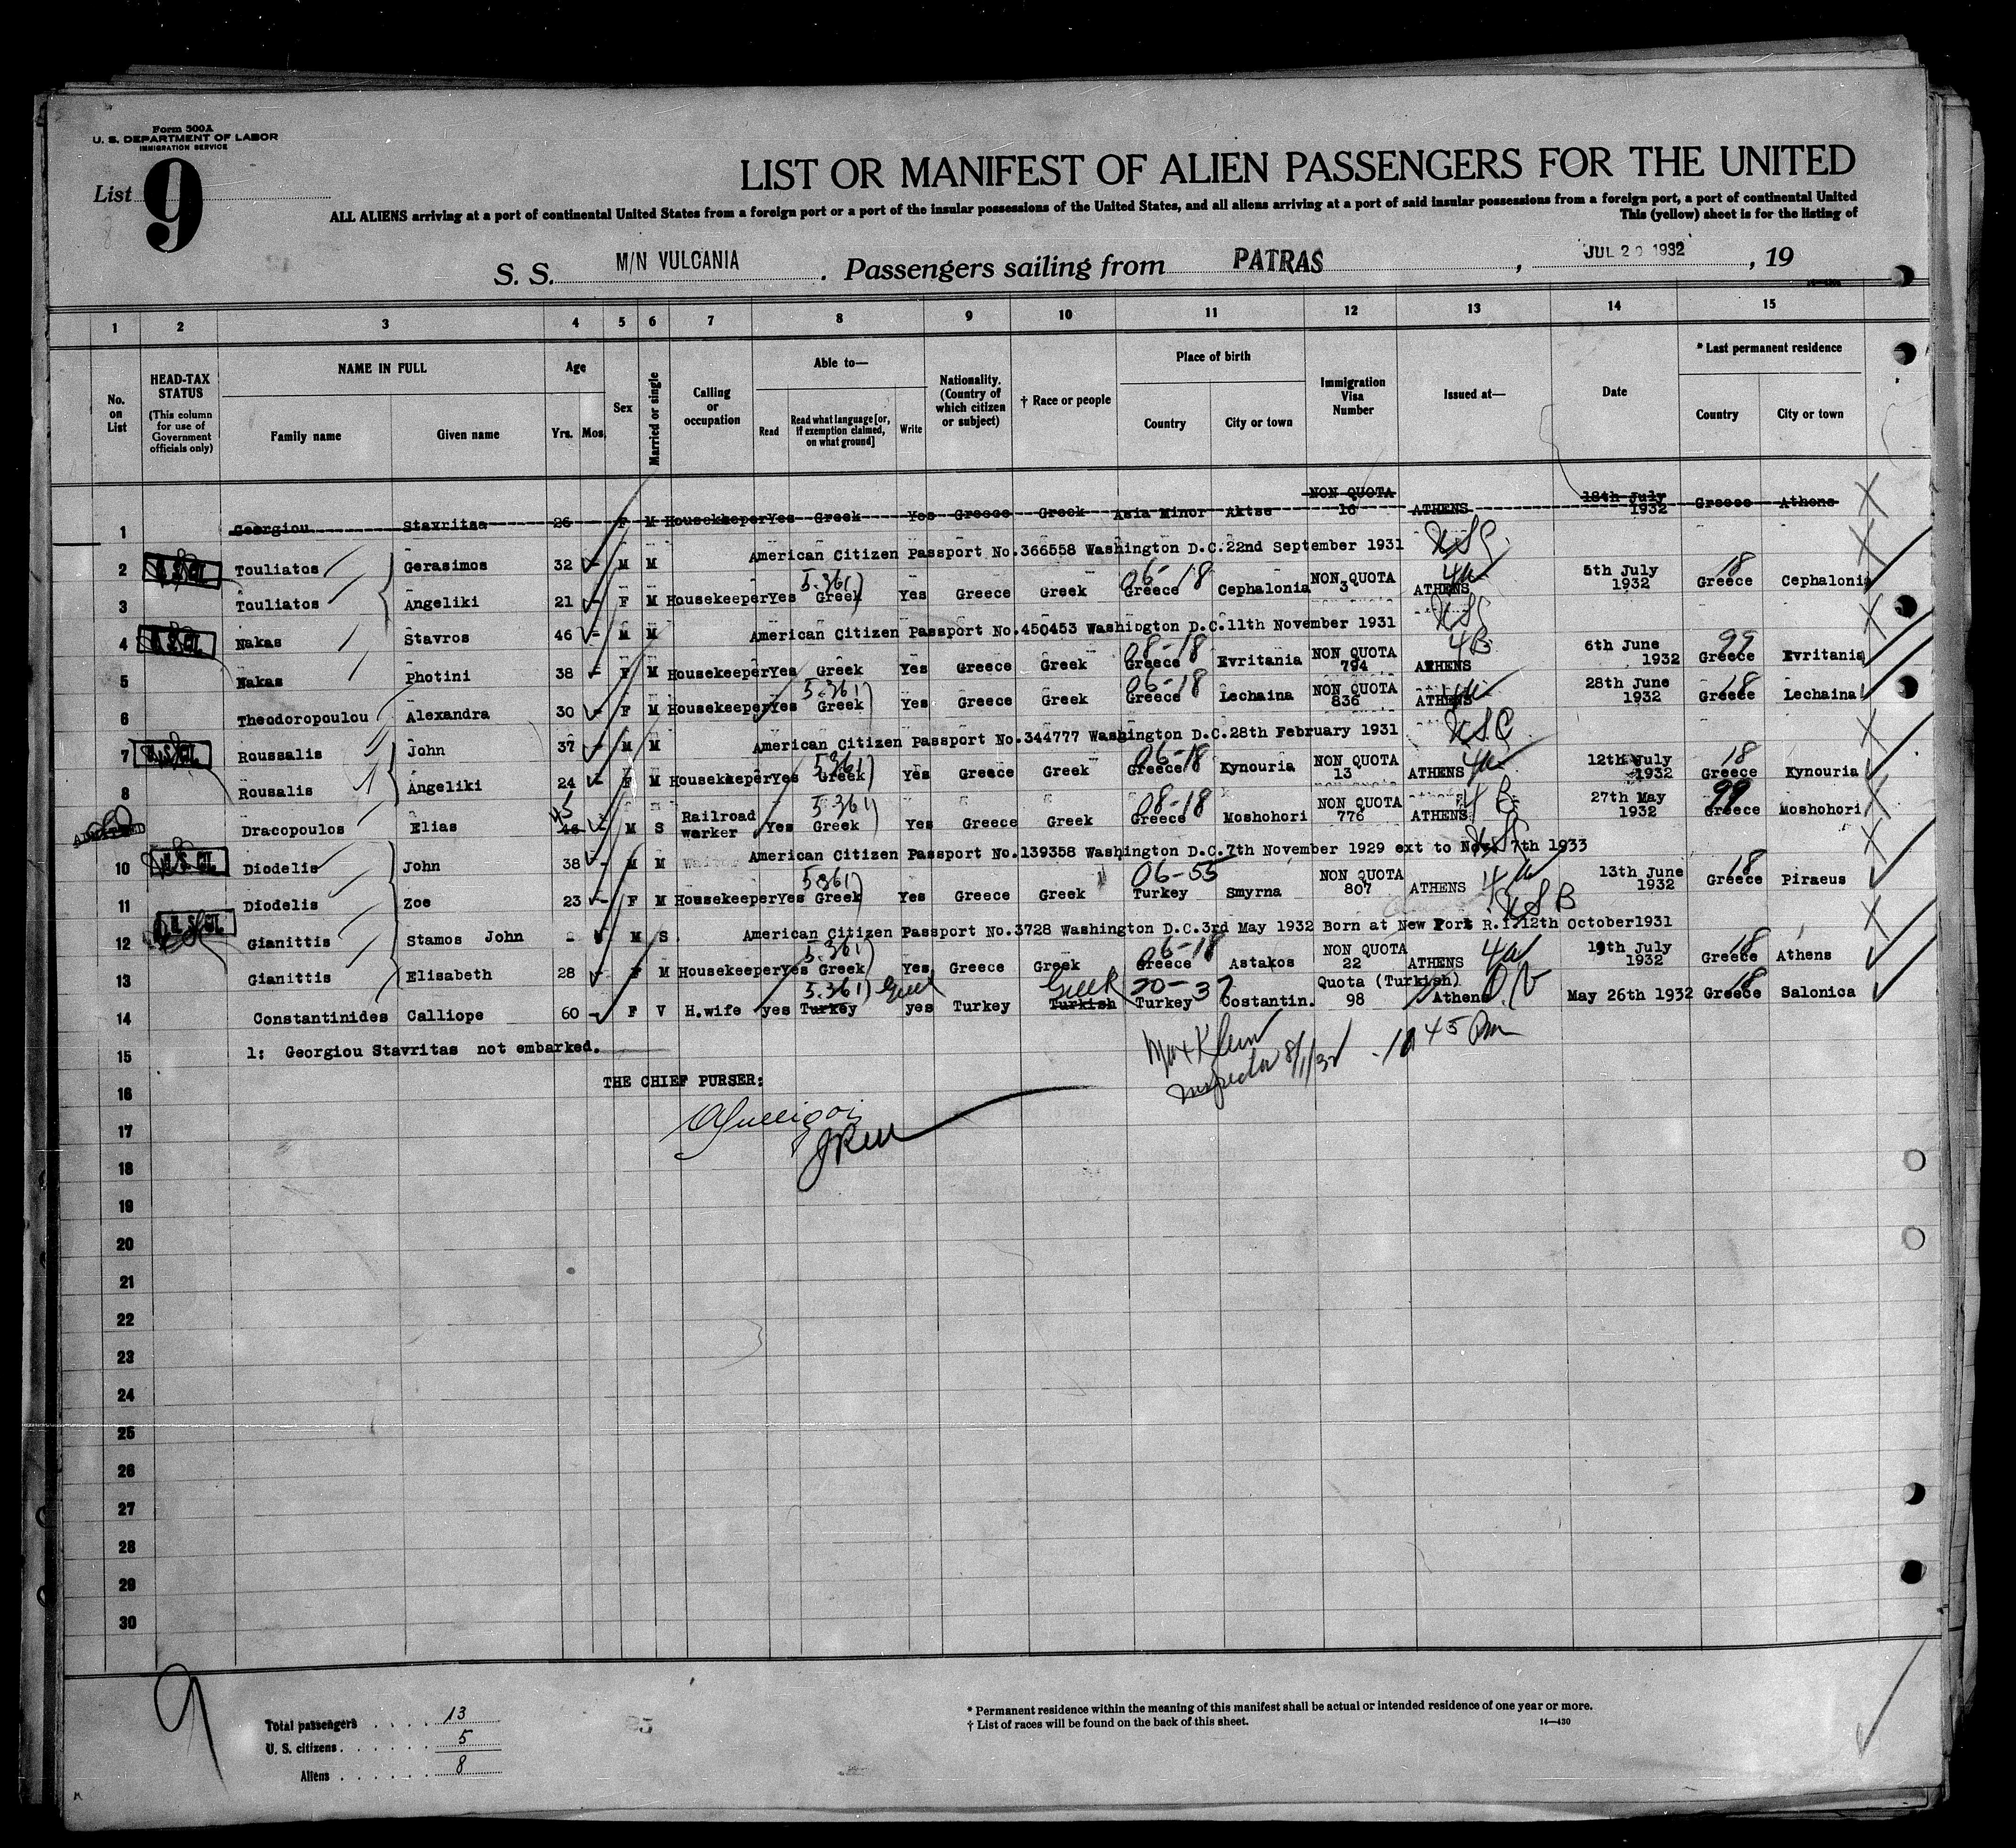 Form 500A
U. S. DEPARTMENT OF LABOR
IMMIGRATION SERVICE
List 9
LIST OR MANIFEST OF ALIEN PASSENGERS FOR THE UNITED
ALL ALIENS arriving at a port of continental United States from a foreign port or a port of the insular possessions of the United States, and all aliens arriving at a port of said insular possessions from a foreign port, a port of continental United
This (yellow) sheet is for the listing of
S. S. M/N VULCANIA . Passengers sailing from PATRAS , JUL 20 1932 , 19
1 2 3 4 5 6 7 8 9 10 11 12 13 14 15
No. on List
HEAD-TAX STATUS (This column for use of Government officials only)
NAME IN FULL
Family name Given name
Age
Yrs. Mos.
Sex
Married or single
Calling or occupation
Able to—
Read Read what language [or, if exemption claimed, on what ground] Write
Nationality. (Country of which citizen or subject)
† Race or people
Place of birth
Country City or town
Immigration Visa Number
Issued at—
Date
* Last permanent residence
Country City or town
1 Georgiou Stavritsa 26 F M Housekkeper Yes Greek Yes Greece Greek Asia Minor Aktse NON QUOTA 16 ATHENS 18th July 1932 Greece Athens
2 U.S.CIT. Touliatos Gerasimos 32 M M American Citizen Passport No.366558 Washington D.C.22nd September 1931 USC
3 Touliatos Angeliki 21 F M Housekeeper Yes 5.361) Greek Yes Greece Greek 06-18 Greece Cephalonia NON QUOTA 3 ATHENS 4a 5th July 1932 18 Greece Cephalonia
4 U.S.CIT. Nakas Stavros 46 M M American Citizen Passport No.450453 Washington D.C.11th November 1931 USC
5 Nakas Photini 38 F M Housekeeper Yes Greek Yes Greece Greek 08-18 Greece Evritania NON QUOTA 794 ATHENS 4B 6th June 1932 99 Greece Evritania
6 Theodoropoulou Alexandra 30 F M Housekeeper Yes 5.361) Greek Yes Greece Greek 06-18 Greece Lechaina NON QUOTA 836 ATHENS 4a 28th June 1932 18 Greece Lechaina
7 U.S.CIT. Roussalis John 37 M M American Citizen Passport No.344777 Washington D.C.28th February 1931 USC
8 Rousalis Angeliki 24 F M Housekkeper Yes 5361) Greek Yes Greece Greek 06-18 Greece Kynouria NON QUOTA 13 ATHENS 4a 12th July 1932 18 Greece Kynouria
ADMITTED Dracopoulos Elias 45 46 M S Railroad warker Yes 5.361) Greek Yes Greece Greek 08-18 Greece Moshohori NON QUOTA 776 ATHENS 4B 27th May 1932 99 Greece Moshohori
10 U.S.CIT. Diodelis John 38 M M American Citizen Passport No.139358 Washington D.C.7th November 1929 ext to Nov. 7th 1933
11 Diodelis Zoe 23 F M Housekeeper Yes 5361) Greek Yes Greece Greek 06-55 Turkey Smyrna NON QUOTA 807 ATHENS 4a 13th June 1932 18 Greece Piraeus
12 U.S.CIT. Gianittis Stamos John M S American Citizen Passport No.3728 Washington D.C.3rd May 1932 Born at New Port R.I.12th October1931 USB
13 Gianittis Elisabeth 28 F M Housekeeper Yes 5.361) Greek Yes Greece Greek 06-18 Greece Astakos NON QUOTA 22 ATHENS 4a 19th July 1932 18 Greece Athens
14 Constantinides Calliope 60 F V H.wife yes 5.361) Turkey Greek yes Turkey Greek Turkish 20-37 Turkey Costantin. Quota (Turkish) 98 Athens May 26th 1932 18 Greece Salonica
15 1: Georgiou Stavritas not embarked.
Max Klein
Inspector 8/1/32 10 45 Pm
16 THE CHIEF PURSER:
17
18
19
20
21
22
23
24
25
26
27
28
29
30
9
Total passengers 13
U. S. citizens 5
Aliens 8
* Permanent residence within the meaning of this manifest shall be actual or intended residence of one year or more.
† List of races will be found on the back of this sheet.
14—430